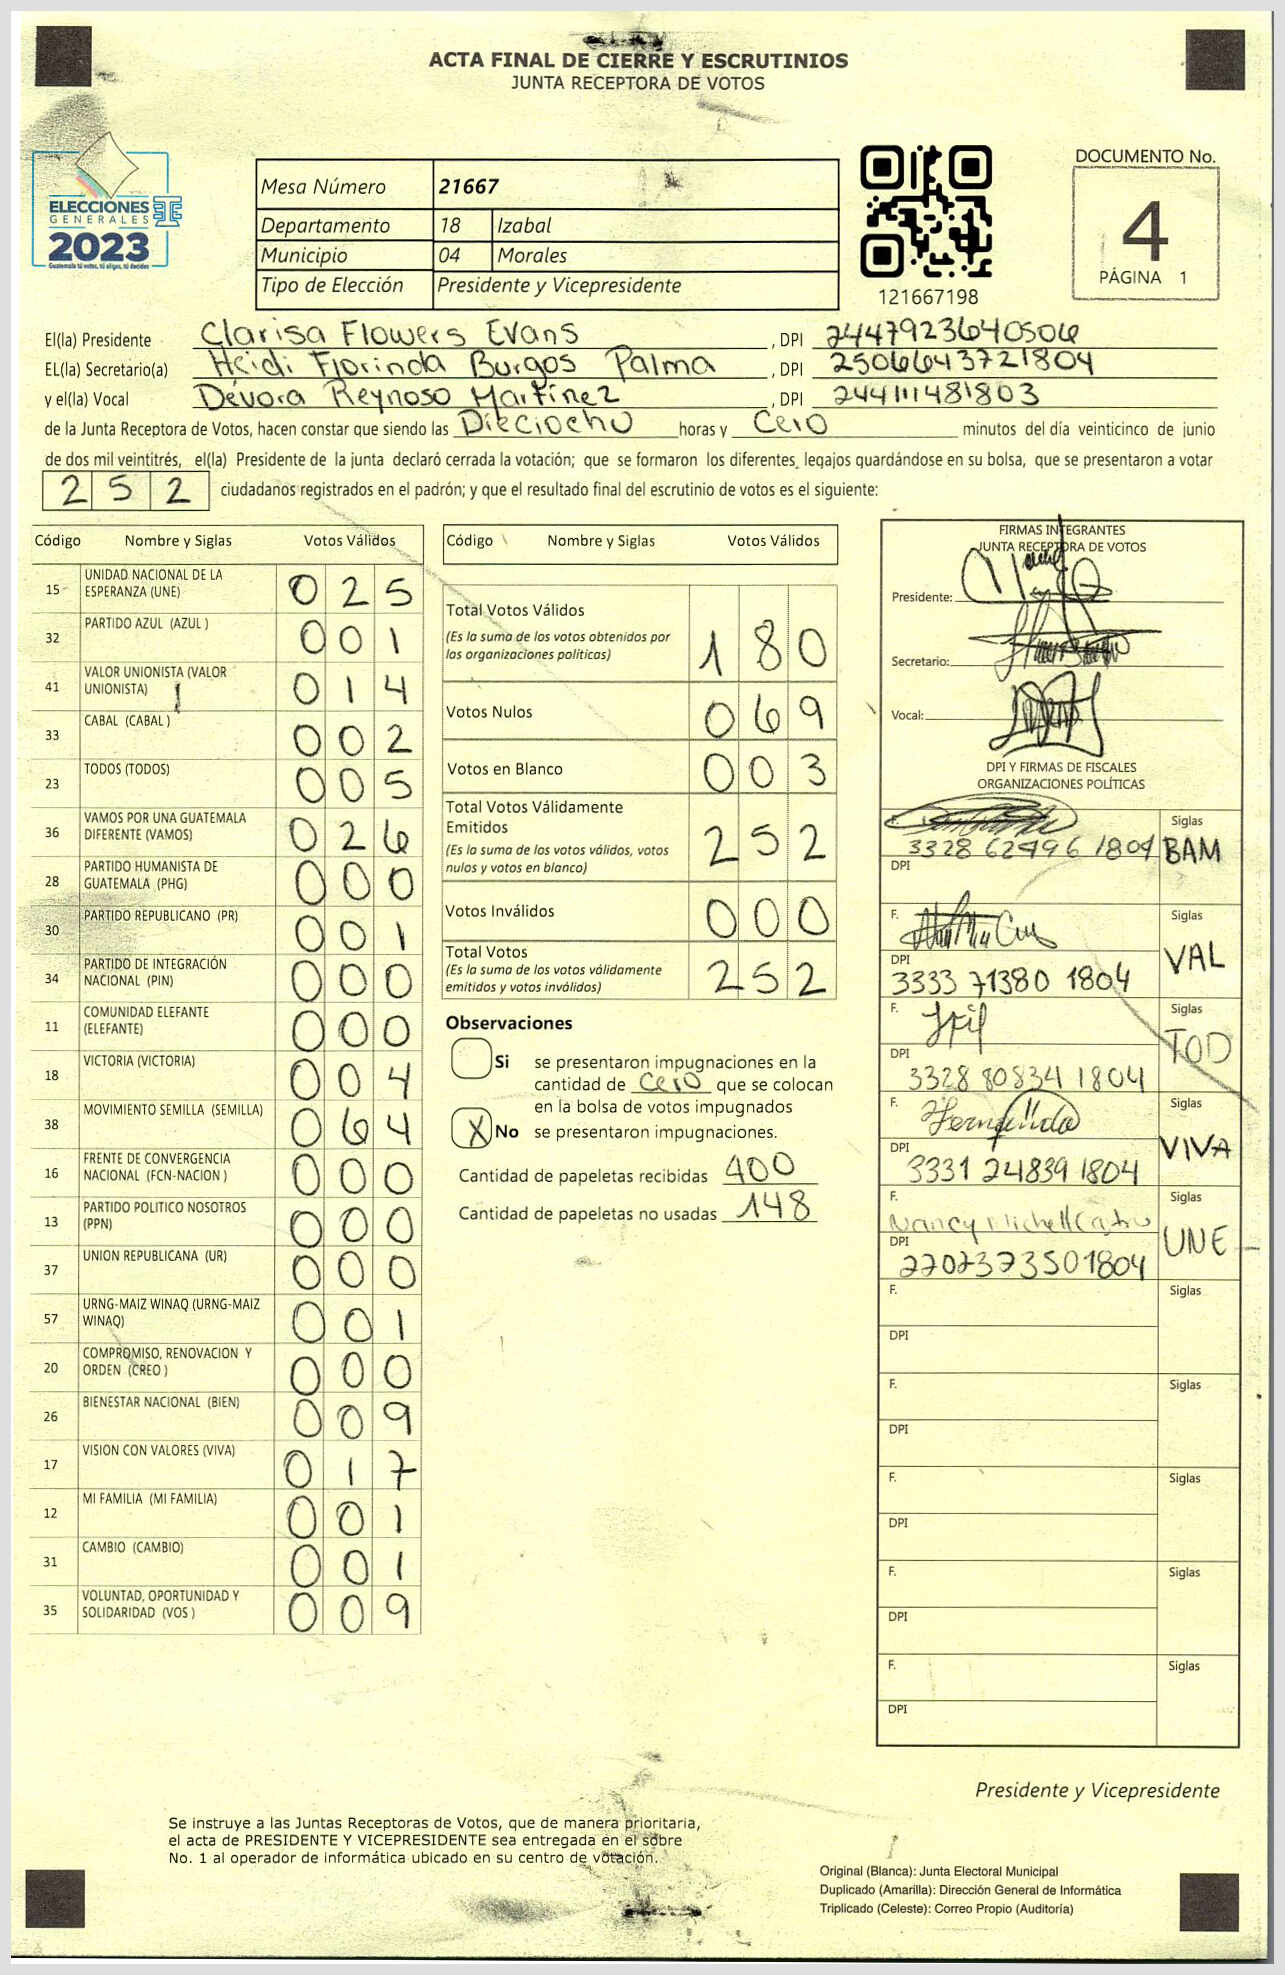 ACTA FINAL DE CIERRE Y ESCRUTINIOS
JUNTA RECEPTORA DE VOTOS
ELECCIONES
GENERALES
2023
Guatemala tú votas, tú eliges, tú decides
Mesa Número 21667
Departamento 18 Izabal
Municipio 04 Morales
Tipo de Elección Presidente y Vicepresidente
121667198
DOCUMENTO No.
4
PÁGINA 1
El(la) Presidente Clarisa Flowers Evans , DPI 2447923640506
EL(la) Secretario(a) Heidi Florinda Burgos Palma , DPI 2506643721804
y el(la) Vocal Dévora Reynoso Martínez , DPI 244111481803
de la Junta Receptora de Votos, hacen constar que siendo las Dieciocho horas y Cero minutos del día veinticinco de junio
de dos mil veintitrés, el(la) Presidente de la junta declaró cerrada la votación; que se formaron los diferentes legajos guardándose en su bolsa, que se presentaron a votar
252 ciudadanos registrados en el padrón; y que el resultado final del escrutinio de votos es el siguiente:
Código Nombre y Siglas Votos Válidos
15 UNIDAD NACIONAL DE LA ESPERANZA (UNE) 025
32 PARTIDO AZUL (AZUL ) 001
41 VALOR UNIONISTA (VALOR UNIONISTA) 014
33 CABAL (CABAL ) 002
23 TODOS (TODOS) 005
36 VAMOS POR UNA GUATEMALA DIFERENTE (VAMOS) 026
28 PARTIDO HUMANISTA DE GUATEMALA (PHG) 000
30 PARTIDO REPUBLICANO (PR) 001
34 PARTIDO DE INTEGRACIÓN NACIONAL (PIN) 000
11 COMUNIDAD ELEFANTE (ELEFANTE) 000
18 VICTORIA (VICTORIA) 004
38 MOVIMIENTO SEMILLA (SEMILLA) 064
16 FRENTE DE CONVERGENCIA NACIONAL (FCN-NACION ) 000
13 PARTIDO POLITICO NOSOTROS (PPN) 000
37 UNION REPUBLICANA (UR) 000
57 URNG-MAIZ WINAQ (URNG-MAIZ WINAQ) 001
20 COMPROMISO, RENOVACION Y ORDEN (CREO ) 000
26 BIENESTAR NACIONAL (BIEN) 009
17 VISION CON VALORES (VIVA) 017
12 MI FAMILIA (MI FAMILIA) 001
31 CAMBIO (CAMBIO) 001
35 VOLUNTAD, OPORTUNIDAD Y SOLIDARIDAD (VOS ) 009
Código Nombre y Siglas Votos Válidos
Total Votos Válidos 180
(Es la suma de los votos obtenidos por
las organizaciones políticas)
Votos Nulos 069
Votos en Blanco 003
Total Votos Válidamente
Emitidos 252
(Es la suma de los votos válidos, votos
nulos y votos en blanco)
Votos Inválidos 000
Total Votos 252
(Es la suma de los votos válidamente
emitidos y votos inválidos)
Observaciones
Si se presentaron impugnaciones en la
cantidad de cero que se colocan
en la bolsa de votos impugnados
X No se presentaron impugnaciones.
Cantidad de papeletas recibidas 400
Cantidad de papeletas no usadas 148
FIRMAS INTEGRANTES
JUNTA RECEPTORA DE VOTOS
Presidente:
Secretario:
Vocal:
DPI Y FIRMAS DE FISCALES
ORGANIZACIONES POLÍTICAS
F. Siglas
3328 62496 1804 BAM
DPI
F. Siglas
VAL
DPI
3333 71380 1804
F. Siglas
TOD
DPI
3328 80834 1804
F. Siglas
VIVA
DPI
3331 24839 1804
F. Siglas
Nancy Michell Castro
UNE
DPI
2702373501804
F. Siglas
DPI
F. Siglas
DPI
F. Siglas
DPI
F. Siglas
DPI
F. Siglas
DPI
Presidente y Vicepresidente
Se instruye a las Juntas Receptoras de Votos, que de manera prioritaria,
el acta de PRESIDENTE Y VICEPRESIDENTE sea entregada en el sobre
No. 1 al operador de informática ubicado en su centro de votación.
Original (Blanca): Junta Electoral Municipal
Duplicado (Amarilla): Dirección General de Informática
Triplicado (Celeste): Correo Propio (Auditoría)